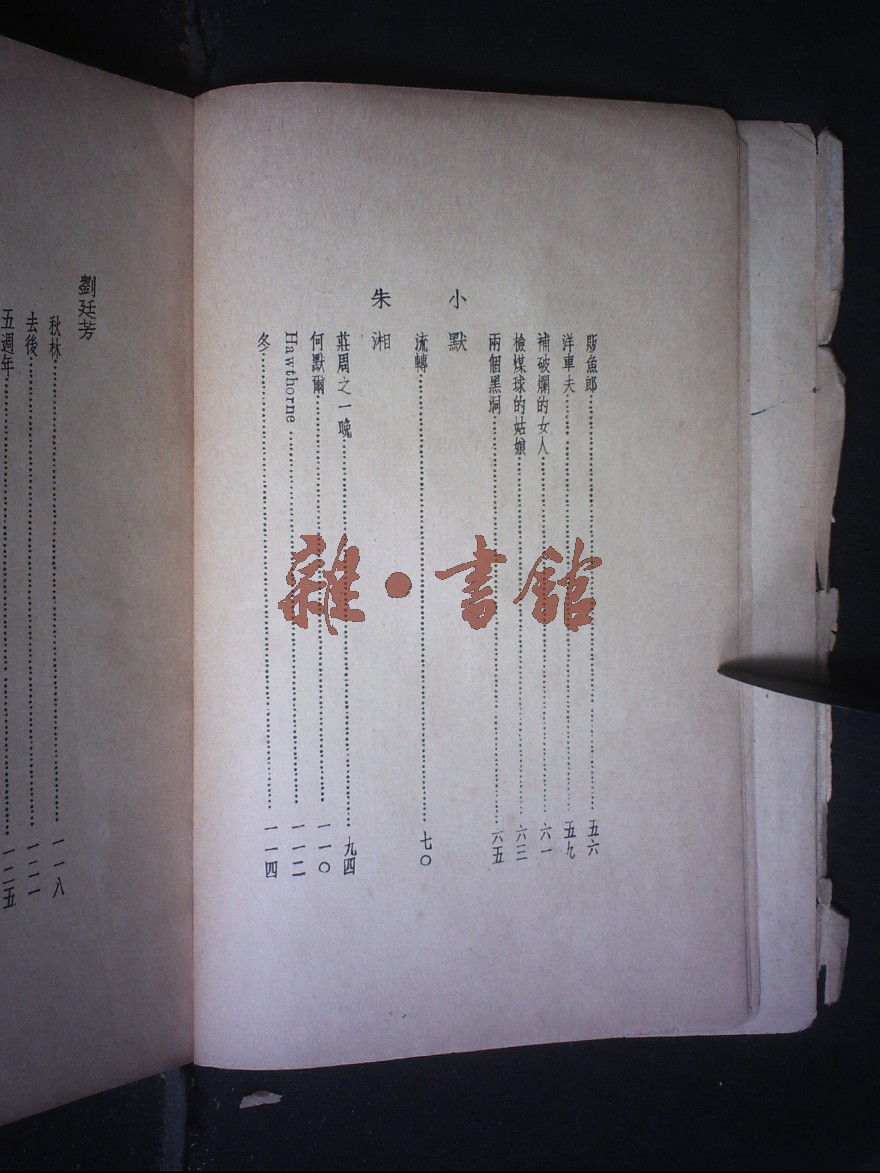 販魚郎……五六
洋車夫……五九
補破爛的女人……六一
檢煤球的姑娘……六三
兩個黑洞……六五
小默
流轉……七〇
朱湘
莊周之一晚……九四
何默爾……一一〇
Hawthorne……一一二
冬……一一四
劉廷芳
秋林……一一八
去後……一二一
五週年……一二五
雜·書館